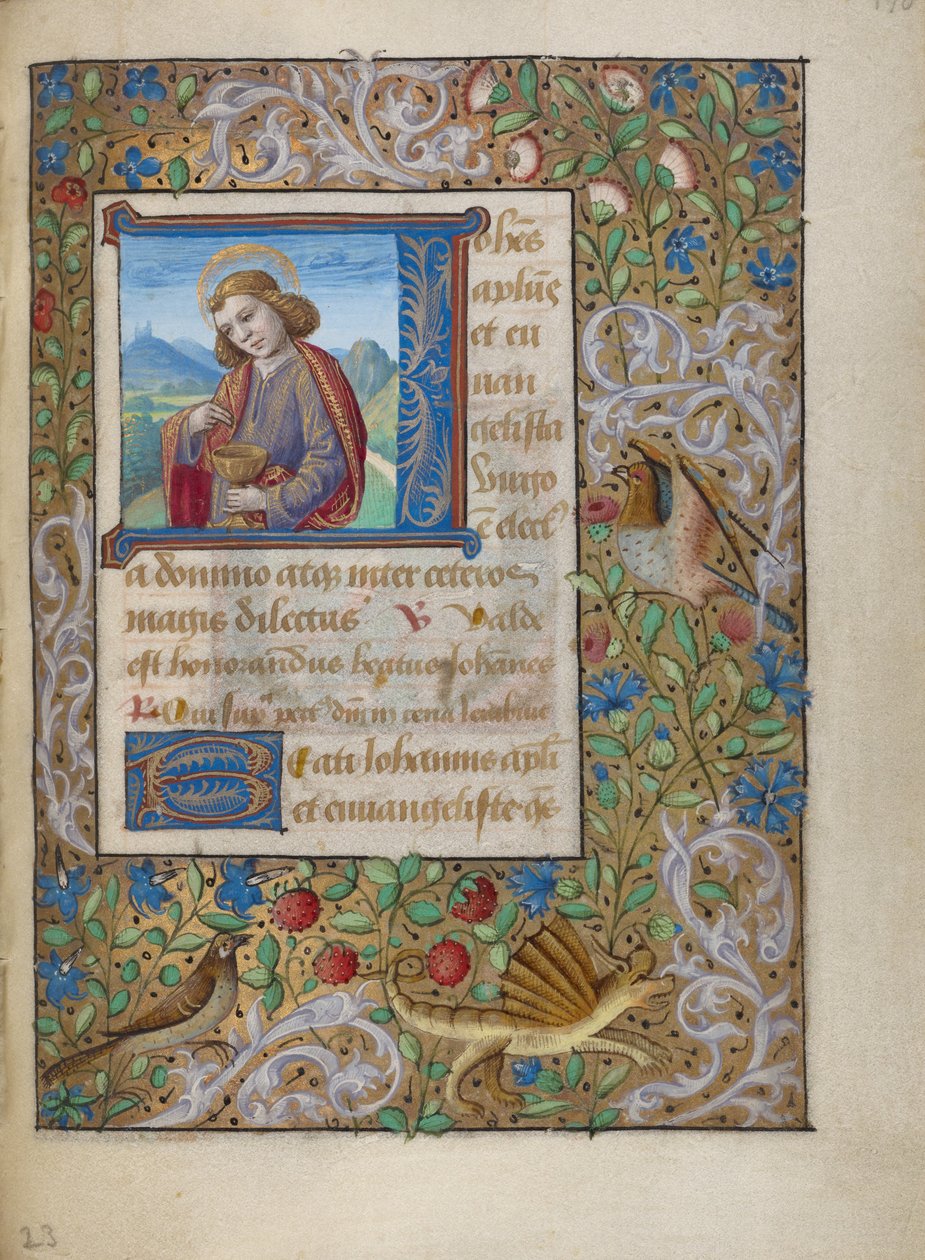 Iohēs
aplūs
et eu
uan
gelista
Uirgo
ē elect
a domino atq inter ceteros
magis dilectus R Valde
est honorandus beatus Johānes
R Qui sup pect dm̄ in cena
Beati Iohannis apli
et euuangeliste qs
23